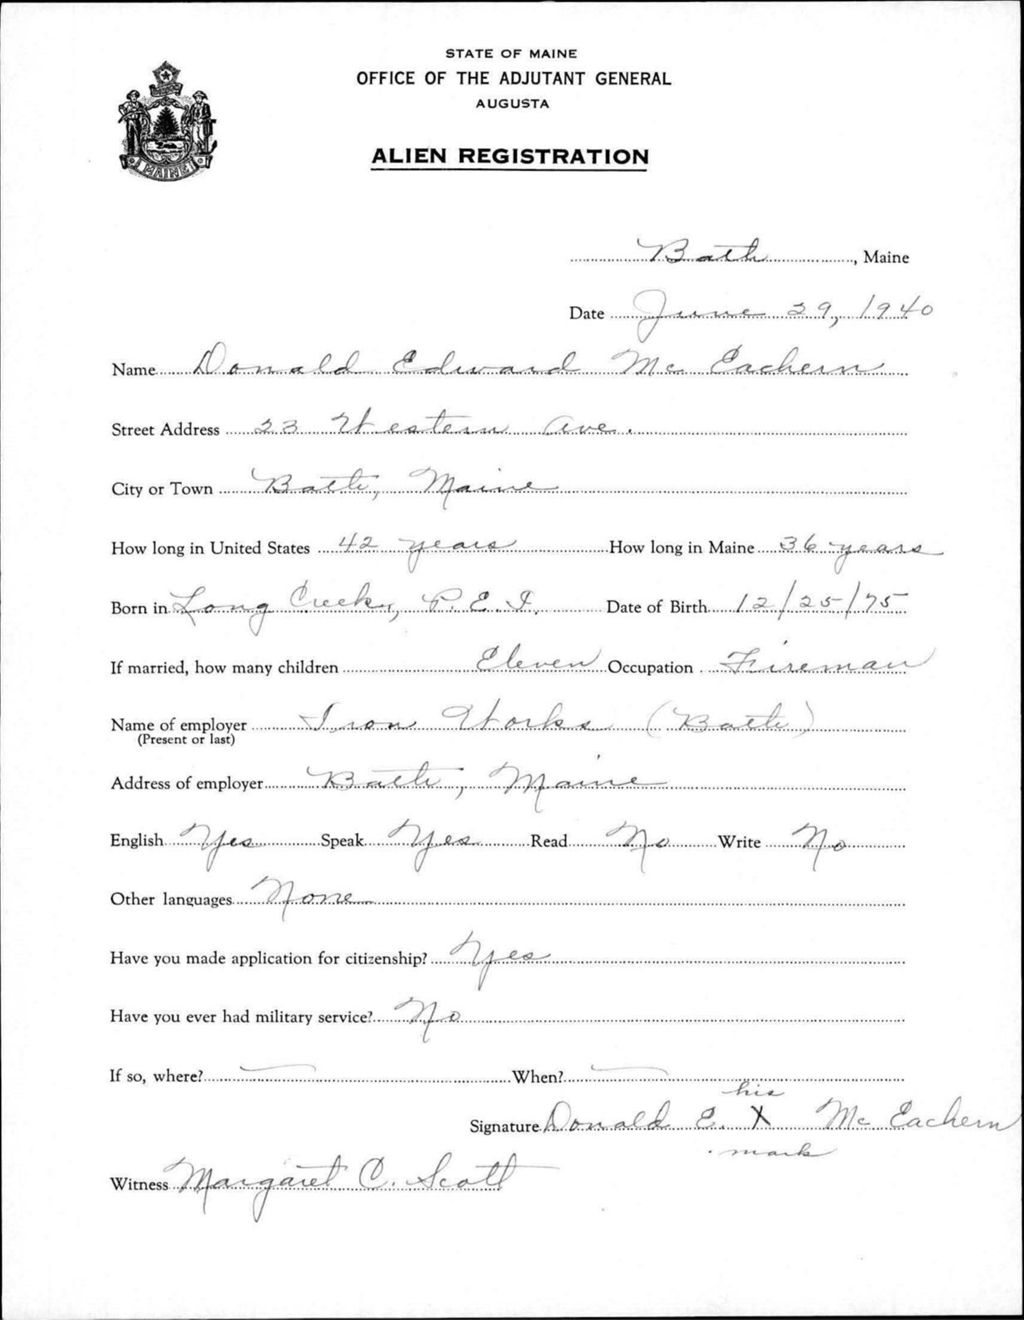 STATE OF MAINE
OFFICE OF THE ADJUTANT GENERAL
AUGUSTA
ALIEN REGISTRATION
MAINE
Bath, Maine
Date June 29, 1940
Name Donald Edward Mc Eachern
Street Address 23 Western Ave.
City or Town Bath, Maine
How long in United States 42 years How long in Maine 36 years
Born in Long Creek, P. E. I. Date of Birth 12/25/75
If married, how many children Eleven Occupation Fireman
Name of employer Iron Works (Bath)
(Present or last)
Address of employer Bath, Maine
English Yes Speak Yes Read No Write No
Other languages None
Have you made application for citizenship? Yes
Have you ever had military service? No
If so, where? — When? —
his
Signature Donald E. X Mc Eachern
mark
Witness Margaret C. Scott